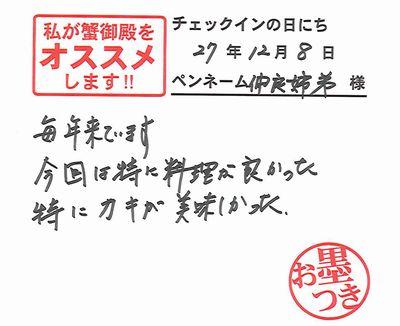 私が蟹御殿を
オススメ
します!!
チェックインの日にち
27年12月8日
ペンネーム仲良姉弟 様
毎年来ています
今回は特に料理が良かった
特にカキが美味しかった.
お墨
つき